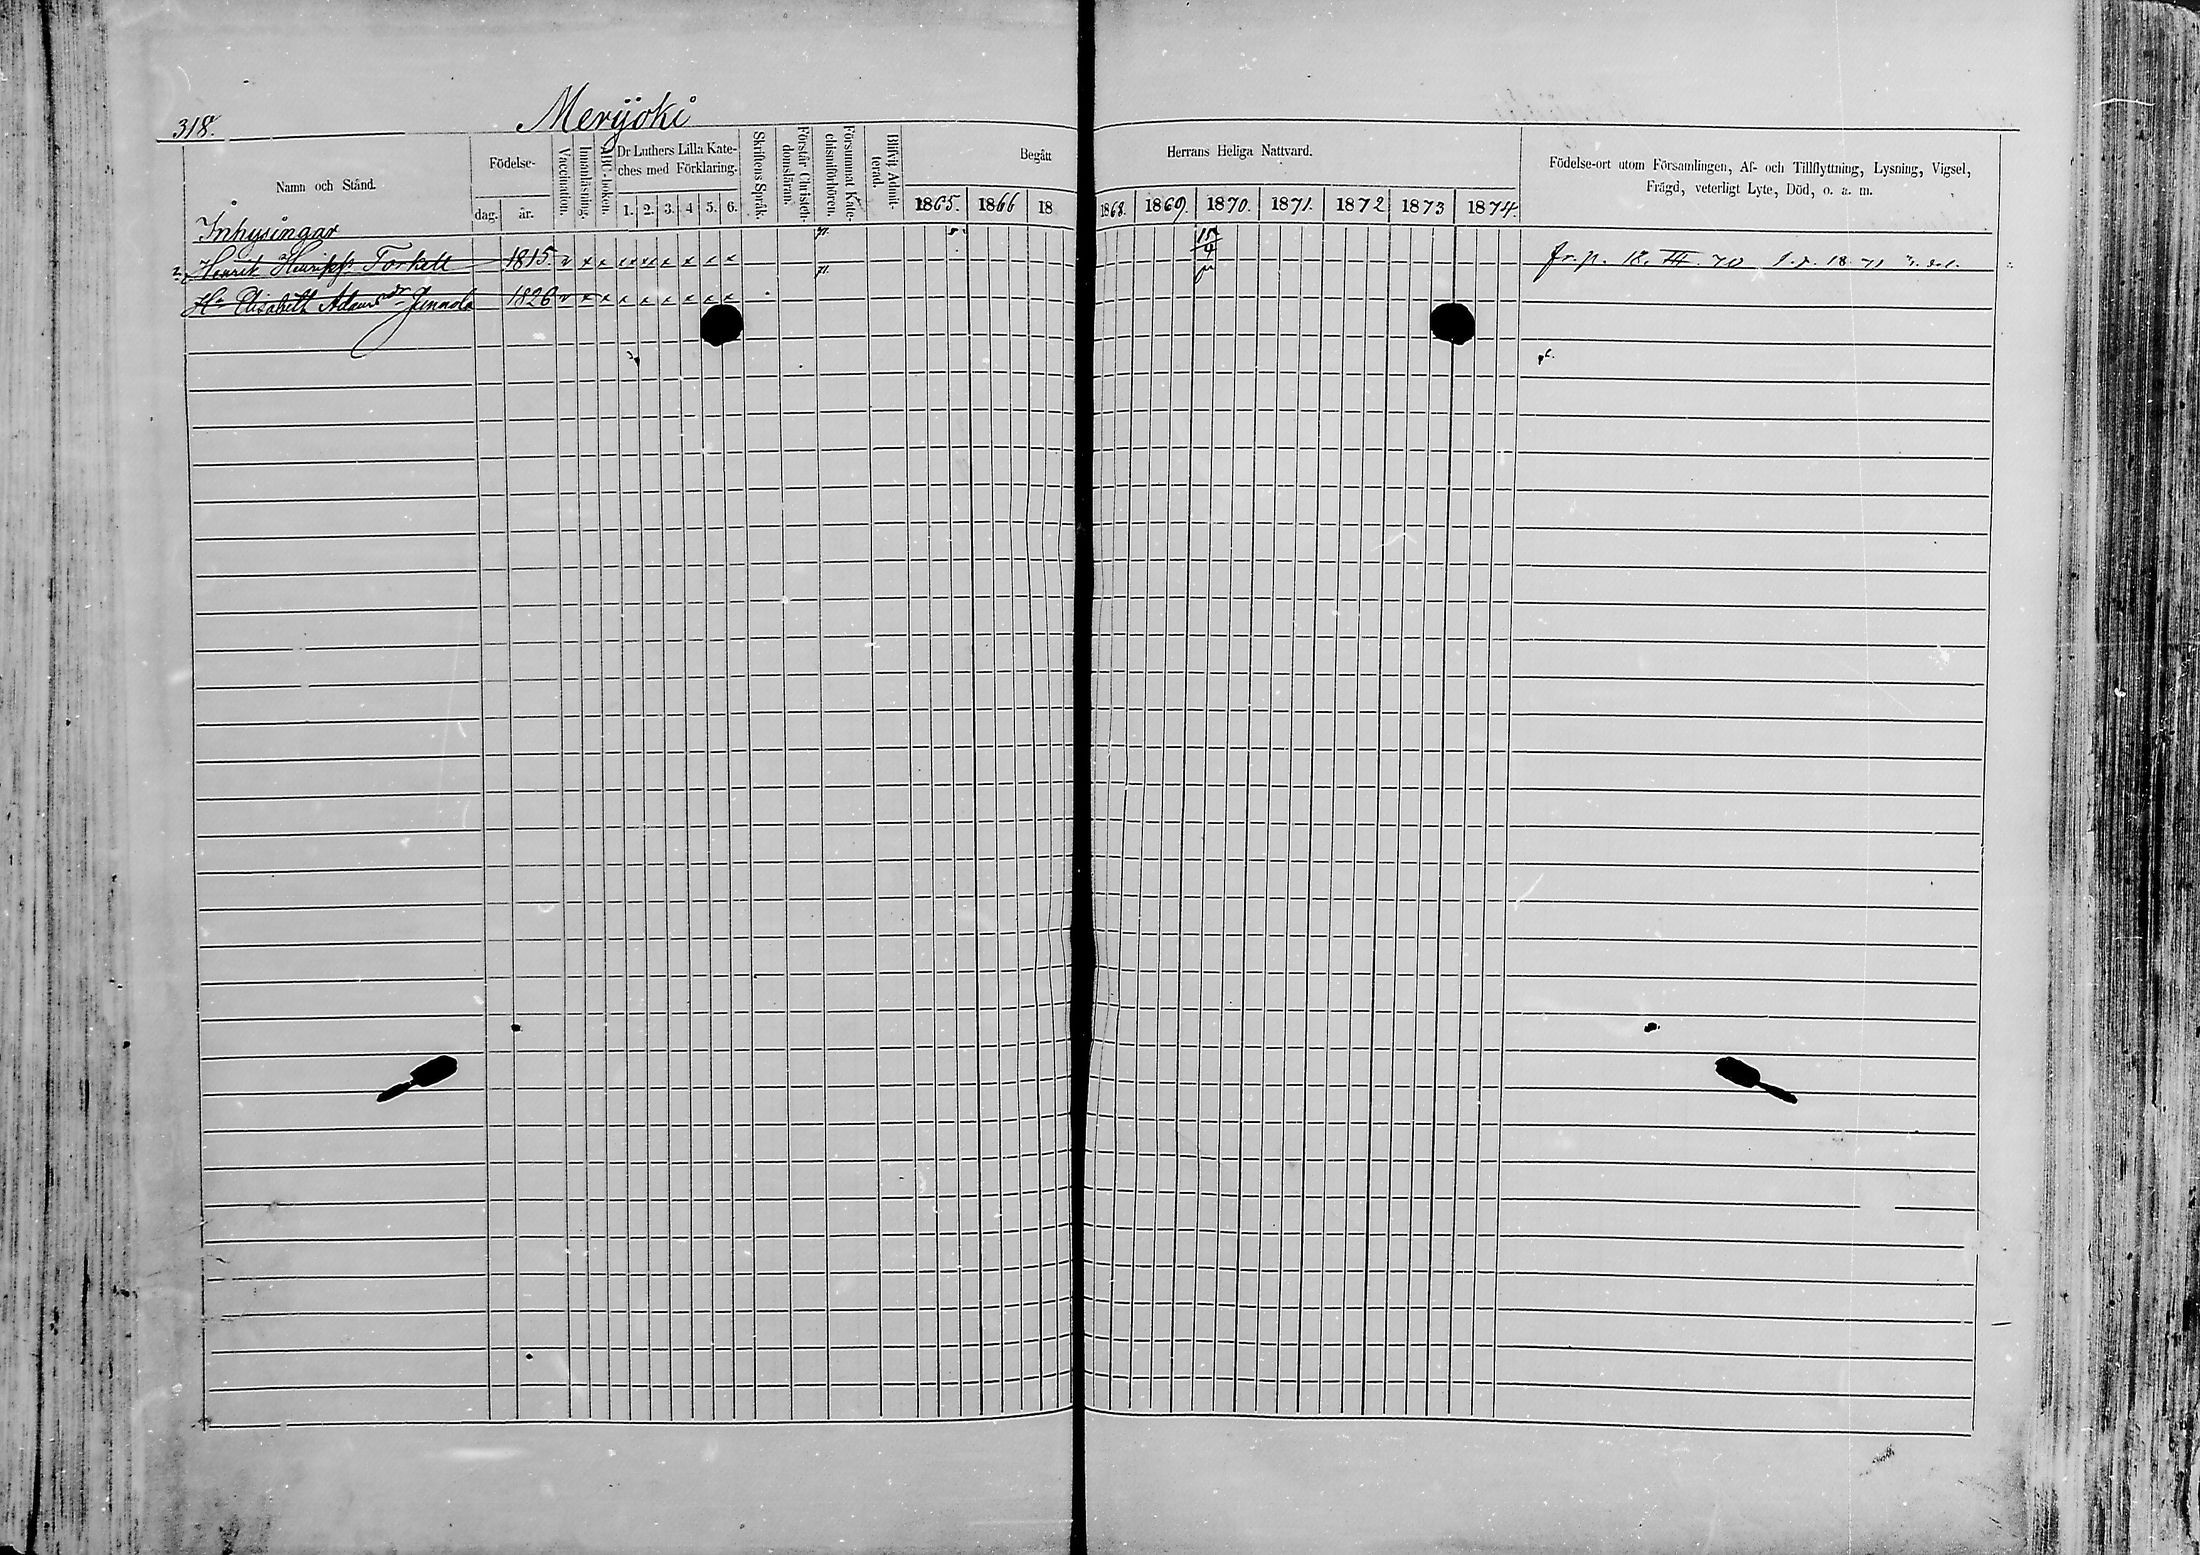 318.
Meryoki
Namn och Stånd.
Födelse-
dag.
år.
Vaccination.
Innanläsning.
ABC-boken.
Dr Luthers Lilla Kate-
ches med Förklaring.
1. 2. 3. 4 5. 6.
Skriftens Språk.
Förstår Christen-
domsläran.
Försummat Kate-
chismiförhören.
Blifvit Admit-
terad.
Begått
Herrans Heliga Nattvard.
1865. 1866 18
1868. 1869. 1870. 1871. 1872 1873 1874.
Födelse-ort utom Församlingen, Af- och Tillflyttning, Lysning, Vigsel,
Frägd, veterligt Lyte, Död, o. a. m.
Inhysingar
Henrik Torkell 1815 v x x x x x x x x
15/4
fr. p. 18. III. 70
Hu Elisabeth Adamsdr Junnola 1826 v x x x x x x x x